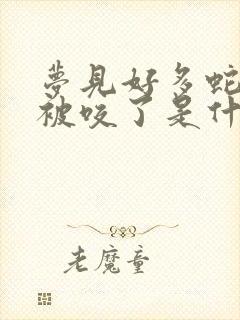 夢見好多蛇
被咬了是什
老魔童